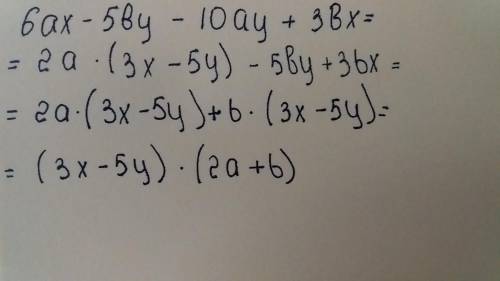 6ax - 5вy - 10ay + 3вx =
= 2a · (3x - 5y) - 5вy + 3bx =
= 2a · (3x - 5y) + b · (3x - 5y) =
= (3x - 5y) · (2a + b)